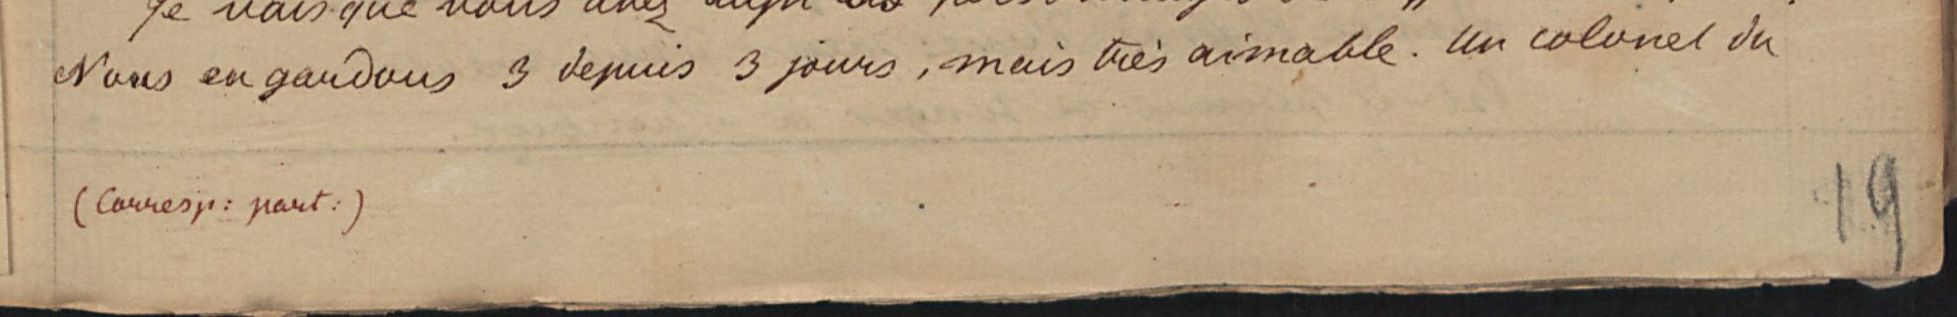 Je vois que vous avez
Nous en gardons 3 depuis 3 jours, mais très aimable. Un colonel du
(Corresp: part:)
19